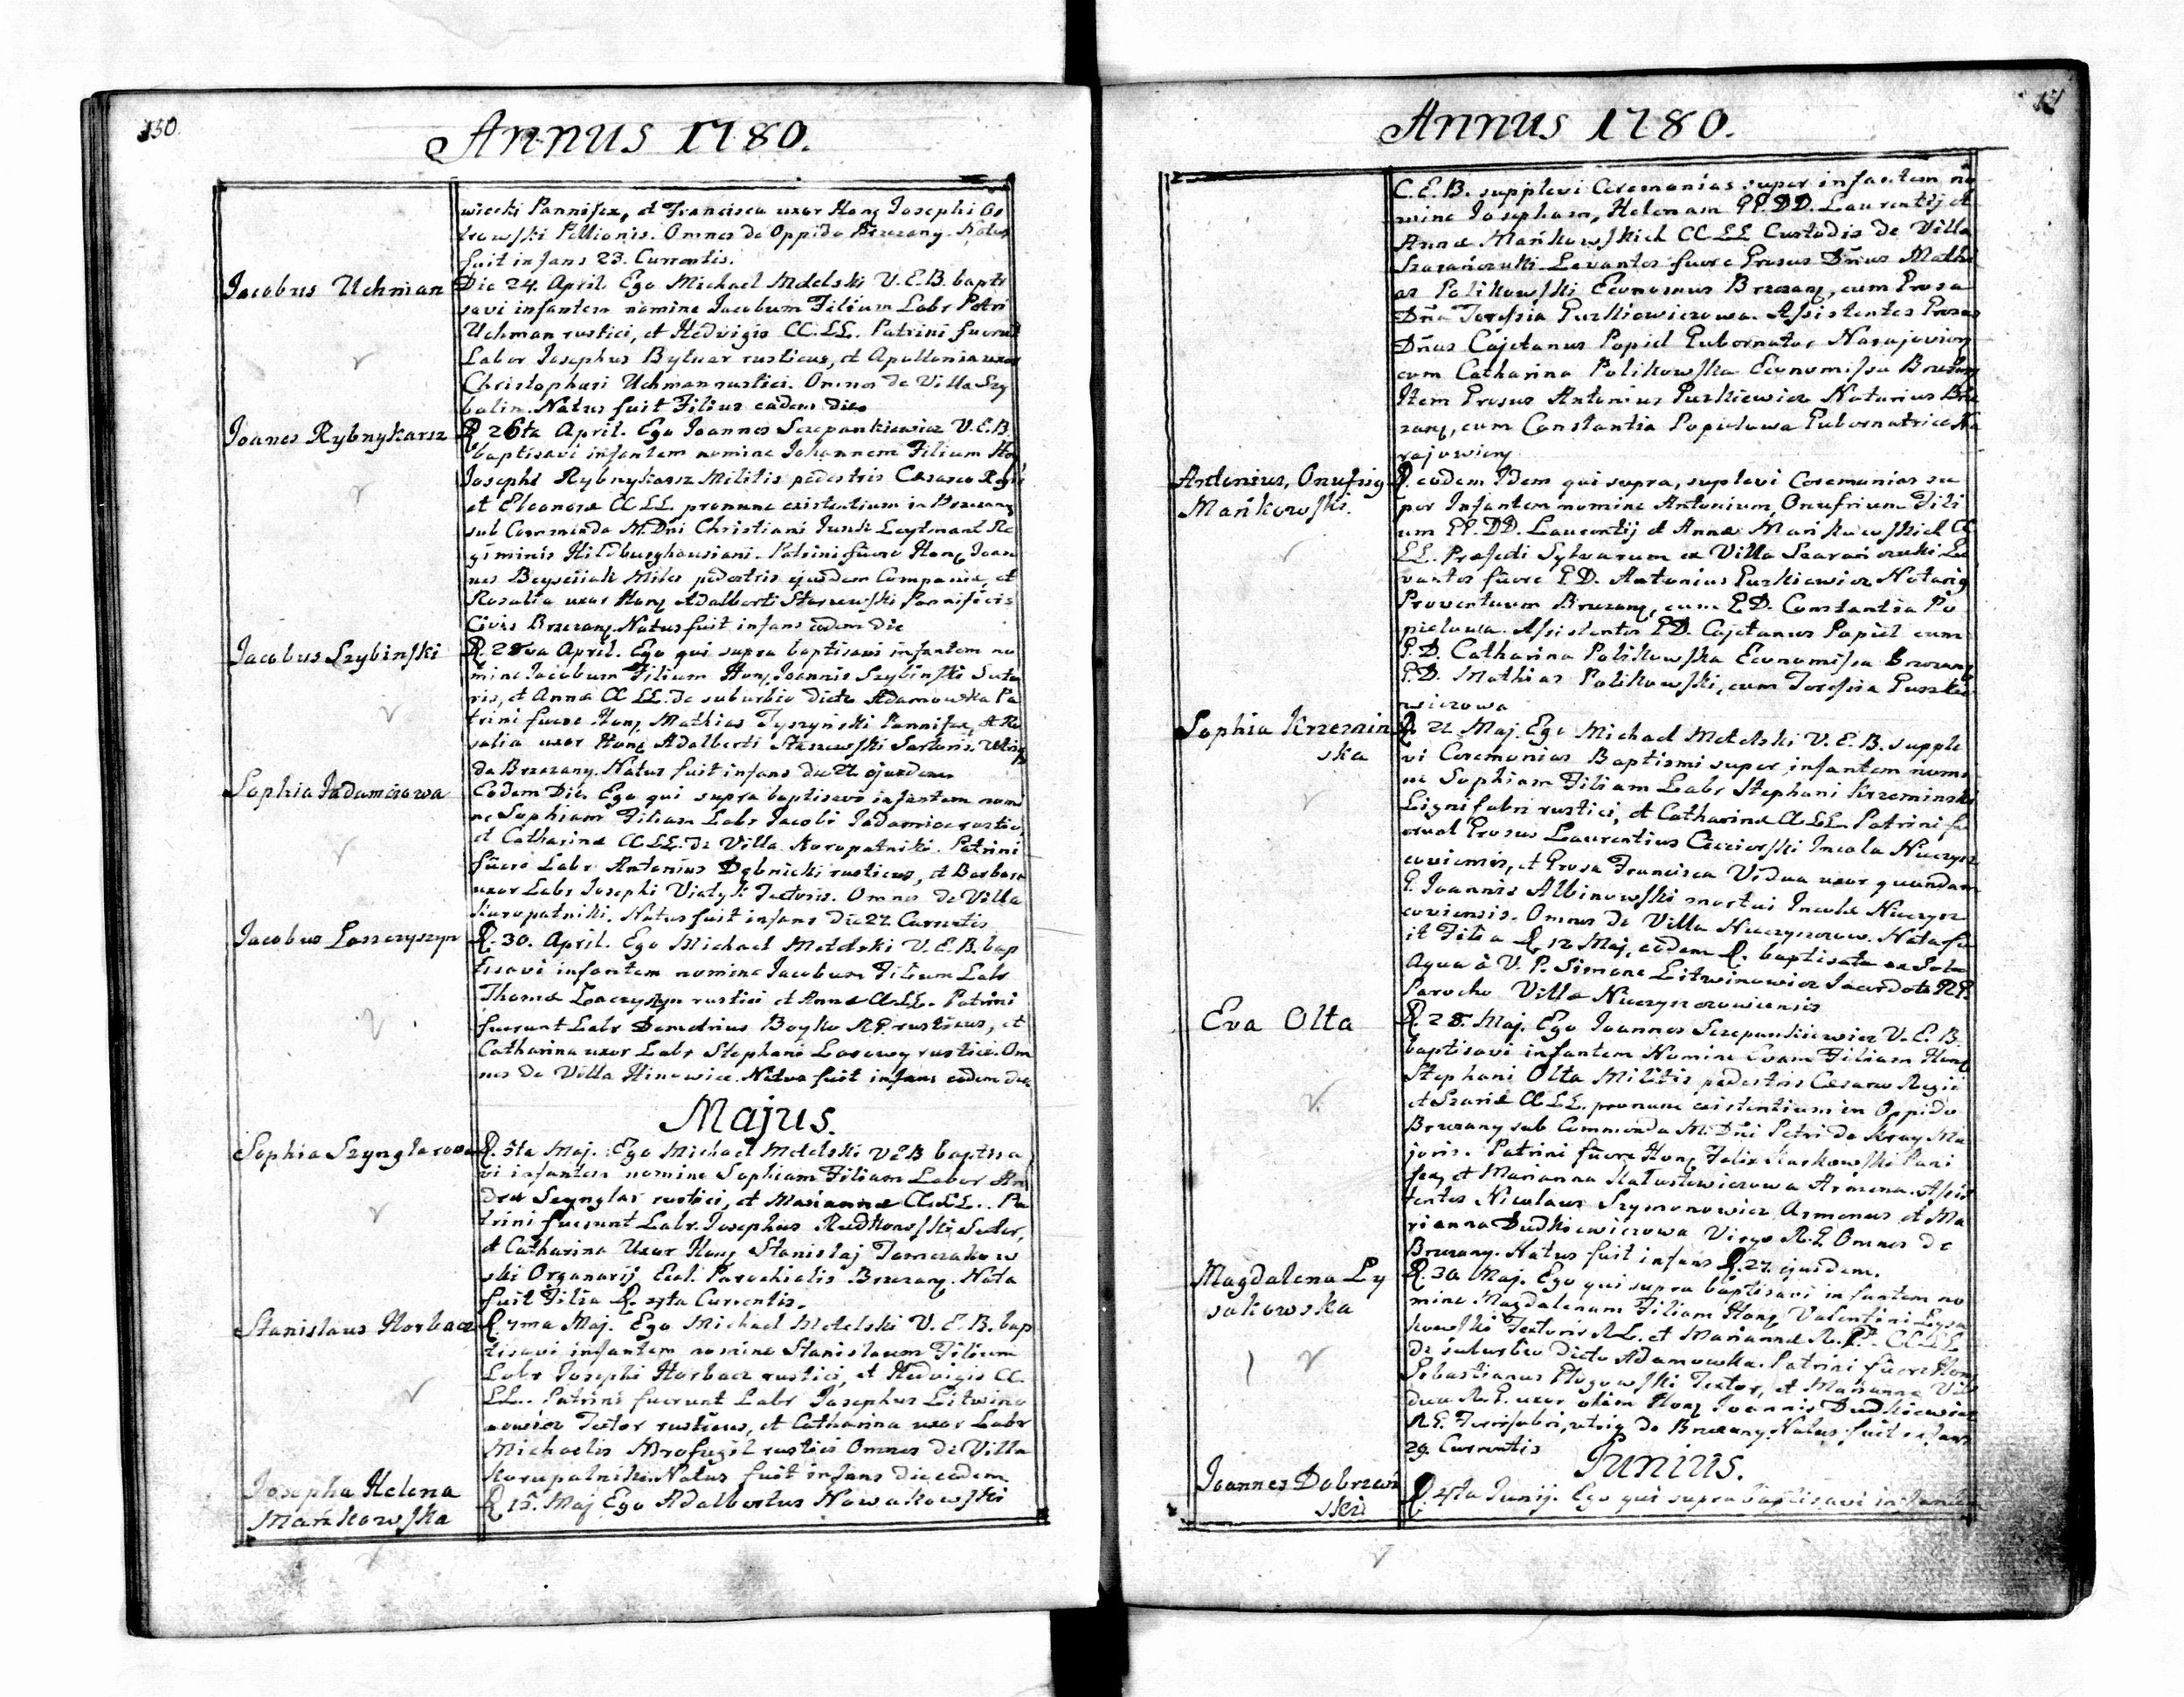 150.
Annus 1780.
wiecki Pannifex, et Francisca uxor Hon. Josephi Os
trowski Pellionis. Omnes de Oppido Brzezany. Natus
fuit infans 23. Currentis.
Jacobus Uchman
Die 24. April. Ego Michael Metelski V.E.B. bapti
savi infantem nomine Jacobum Filium Labr Petri
Uchman rustici, et Hedvigis CC.LL. Patrini fuerunt
Labor Josephus Bytnar rusticus, et Apollonia uxor
Christophori Uchman rustici. Omnes de Villa Szy
balin. Natus fuit Filius eadem die
Joanes Rybnykarsz
D. 26ta April. Ego Joannes Szczepankiewicz V.E.B.
baptisavi infantem nomine Johannem Filium Hon
Josephi Rybnykarsz Militis pedestris Cesareo Regii
et Eleonora CC LL pronunc existentium in Brzezany
sub Commenda M. Dni Christiani Leytenant Re
giminis Hildburghausiani. Patrini fuere Hon. Joan
nes Miles pedestris ejusdem Compania, et
Rosalia uxor Hon. Adalberti Starzewski Pannificis
Civis Brzezany. Natus fuit infans eadem die
Jacobus Szybinski
D. 28va April. Ego qui supra baptisavi infantem no
mine Jacobum Filium Hon. Joannis Szybinski Suto
ris, et Anna CC LL. de suburbio dicto Adamowka Pa
trini fuere Hon. Mathias Tyszynski Pannifex, et Ro
salia uxor Hon. Adalberti Staszewski Sartoris. Utriq
de Brzezany. Natus fuit infans die 27. ejusdem
Sophia Jadamczowa
Eodem Die. Ego qui supra baptisavi infantem nomi
ne Sophiam Filiam Labr Jacobi Jadamicz rustici,
et Catharina CC.LL. de Villa Kuropatniki. Patrini
fuere Labr. Antonius Dębnicki rusticus, et Barbara
uxor Labr Josephi Viatyk Textoris. Omnes de Villa
Kuropatniki. Natus fuit infans die 27. Currentis
Jacobus Laszczyszyn
D. 30. April. Ego Michael Metelski V.E.B. bap
tisavi infantem nomine Jacobum Filium Labr
Thoma Laczyszyn rustici et Anna CC.LL. Patrini
fuerunt Labr Demetrius Boyko R.G. rusticus, et
Catharina uxor Labr Stephani Lasowy rustici. Om
nes de Villa Hinowice. Natus fuit infans eodem die
Majus.
Sophia Szynglarowa
D. 5ta Maj. Ego Michael Metelski VEB baptisa
vi infantem nomine Sophiam Filiam Labor An
drea Szynglar rustici, et Marianna CC.LL.. Pa
trini fuerunt Labr. Josephus Rudkowski Sutor,
et Catharina Uxor Hon. Stanislaj Tomczakow
ski Organarij Eccl. Parochialis Brzezany. Nata
fuit Filia D. 4ta Currentis.
Stanislaus Horbacz
D. 7ma Maj. Ego Michael Metelski V.E.B. bap
tisavi infantem nomine Stanislaum Filium
Labr Josephi Horbacz rustici, et Hedvigis CC.
LL.. Patrini fuerunt Labr Josephus Litwino
nowicz Textor rusticus, et Catharina uxor Labr
Michaelis Mrofugil rustici Omnes de Villa
Kuropatniki. Natus fuit infans die eodem
Josepha Helena
Mańkowska
D. 15. Maj Ego Adalbertus Nowakowski
Annus 1780.
C.E.B. supplevi Ceremonias super infantem no
mine Josepham, Helenam GG.DD. Laurentij et
Anna Mańkowskich CC LL Custodis de Villa
Szarańczuki Levantes fuere Grosus Dnus Mathi
as Polikowski Economus Brzezany, cum Grosa
Dna Teressia Purkiewiczowa. Assistentes Grosus
Dnus Cajetanus Popiel Gubernator Narajoviensis
cum Catharina Polikowska Economissa Brzezany
Item Grosus Antonius Purkiewicz Notarius Brze
zany, cum Constantia Popielowa Gubernatrice Na
rajowieny
Antonius, Onufrig
Mańkowski.
D. eodem Idem qui supra, suplevi Ceremonias su
per Infantem nomine Antonium, Onufrium Fili
um GG. DD. Laurentij et Anna Mańkowskich CC
LL. Prafecti Sylvarum ex Villa Szarańczuki Le
vantes fuere G.D. Antonius Purkiewicz Notarig
Proventuum Brzezany, cum G.D. Constantia Po
pielowa. Assistentes G.D. Cajetanus Popiel cum
G.D. Catharina Polikowska Economissa Brzezany
G.D. Mathias Polikowski, cum Teressia Purkie
wiczowa
Sophia Krzemin
ska
D. 21 Maj. Ego Michael Metelski V.E.B. supple
vi Ceremonias Baptismi super infantem nomi
ne Sophiam Filiam Labr Stephani Krzeminski
Lignifabri rustici, et Catharina CC LL. Patrini fu
erunt Grosus Laurentius Incola
coviensis, et Grosa Francisca Vidua uxor quondam
G. Joannis Albinowski mortui Incola
coviensis. Omnes de Villa Nata fu
it Filia D. 12 Maj, eodem D. baptisata ex Sola
Aqua à V. P. Simone Litwinowicz Sacerdote R.G.
Parocho Villa
Eva Olta
D. 28. Maj. Ego Joannes Szczepankiewicz V.E.B.
baptisavi infantem Nomine Evam Filiam Hon.
Stephani Olta Militis pedestris Cesareo Regii
et CC LL. pronunc existentium in Oppido
Brzezany sub Commenda M. Dni Petri de Kray Ma
joris. Patrini fuere Hon. Felix Karkowski Pani
fex, et Marianna Armena. Assis
tentes Nicolaus Szymonowicz Armenus et Ma
rianna Dudkiewiczowa Virgo R.G Omnes de
Brzezany. Natus fuit infans D. 27. ejusdem.
Magdalena Ly
sakowska
D. 30. Maj. Ego qui supra baptisavi infantem no
mine Magdalenam Filiam Hon. Valentini Lysa
kowski Textoris R.L. et Marianna R.G. CC.LL
de suburbio dicto Adamowka. Patrini fuere Hon.
Sebastianus Glogowski Textor, et Marianna Vi
dua R.G. uxor olim Hon. Joannis Dudkiewicz
R.G. Ferrifabri, utriq de Brzezany. Natus fuit infans
29. Currentis
Junius.
Joannes Dobrzań
ski
D. 4ta Junij. Ego qui supra baptisavi infantem